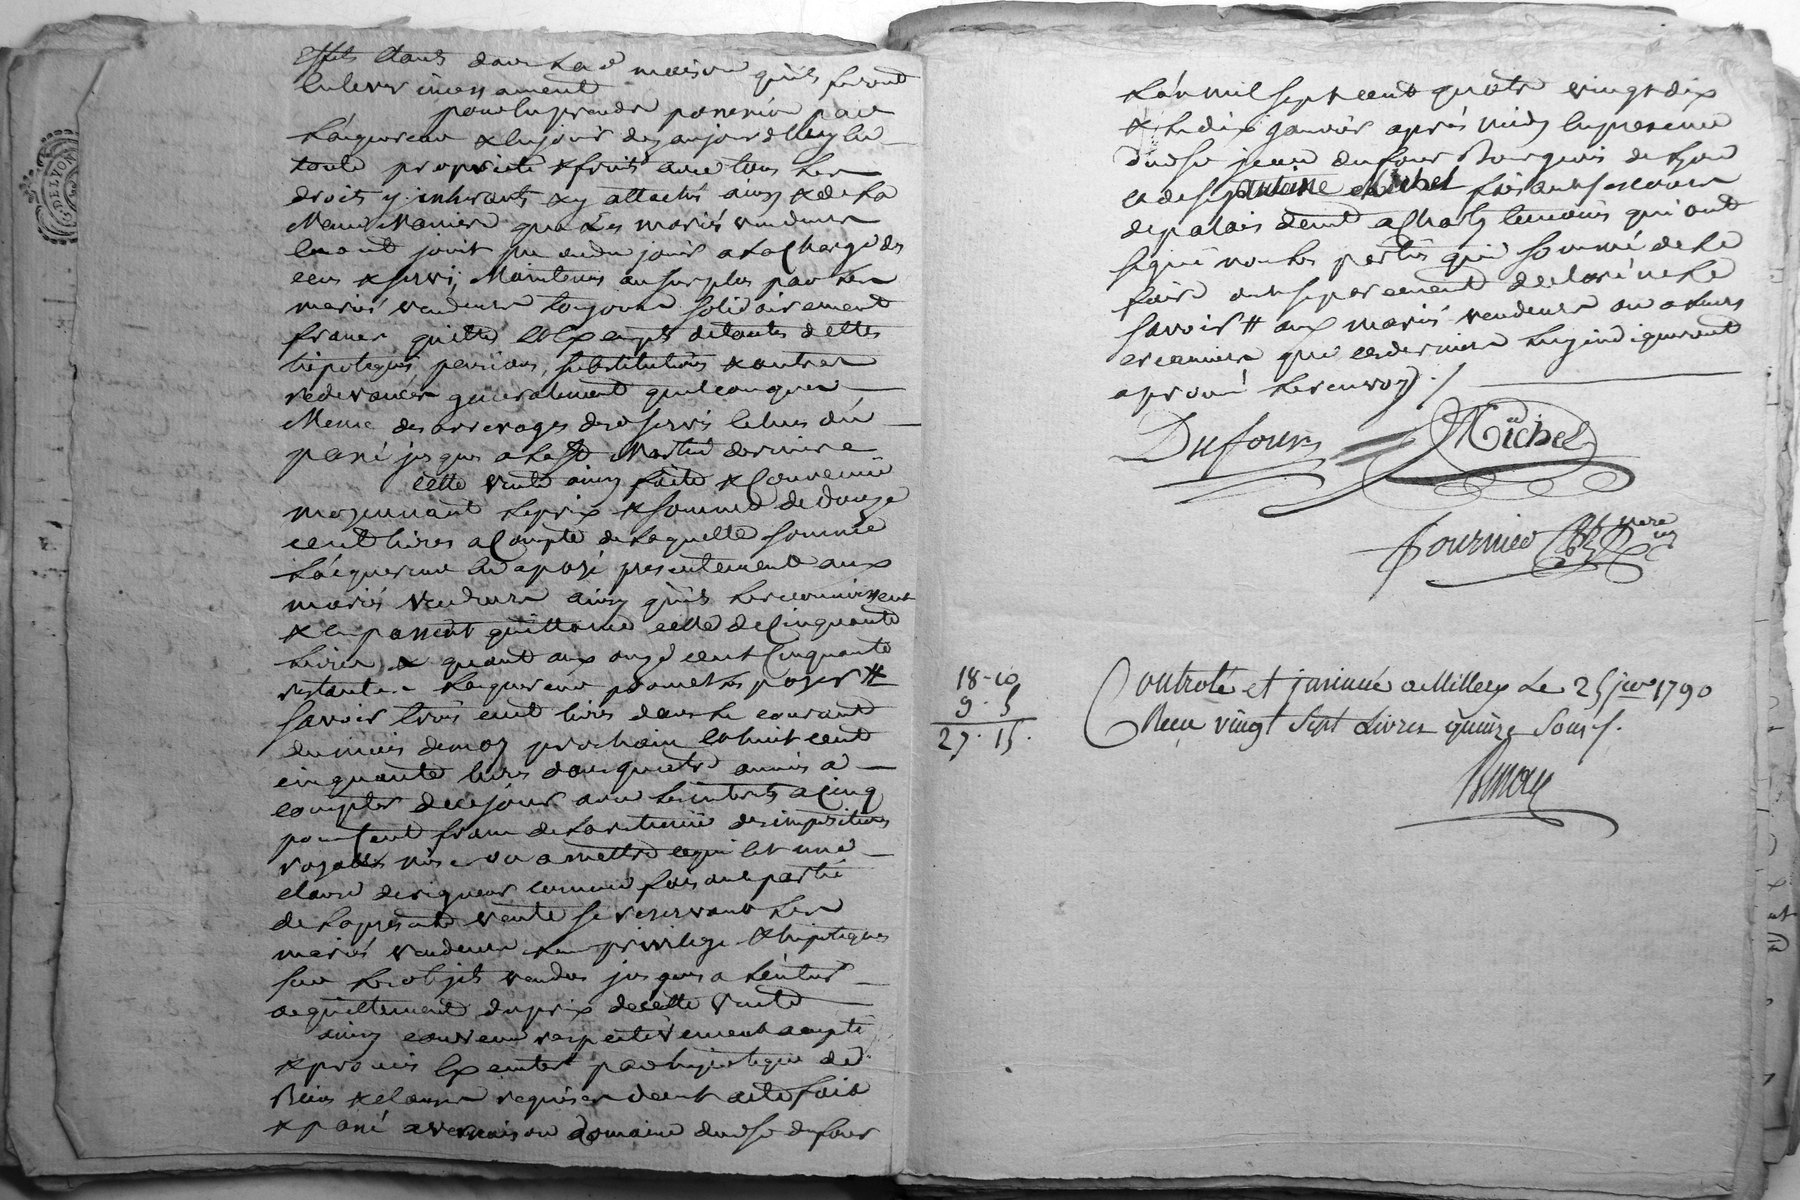 Effets étant dans lad maison quils feront
enlever incessament
pour en prendre possession par
l'acquereur & en jouir dez aujourdhuy en
toute proprieté & fruits avec tous les
droits y inherants & y attachés ainsy & de la
meme maniere que les mariés vendeurs
en ont jouit pu ou du jouir a la charge des
cens & servis maintenus au surplus par les
mariés vendeurs toujours solidairement
francs quittes et exempts de toutes dettes
hipoteques, pensions, substitutions & autres
redevances generalement quelconques
meme des arrerages desd servis echus du
passé jusques a la St Martin derniere
cette vente ainsy faite & convenüe
moyennant le prix & somme de douze
cent livres a compte de laquelle somme
l'acquereur en a payé presentement aux
mariés vendeurs ainsy quils le reconnoissent
& en passent quittance celle de cinquante
livres & quant aux onze cent cinquante
restantes l'acquereur promet les payer #
savoir trois cent livres dans le courant
du mois de may prochain et huit cent
cinquante livres dans quatre années a
compter de ce jour avec les interets a cinq
pour cent francs de la retenüe des impositions
royalles mises ou a mettre ce qui est une
clause de rigueur comme faisant partie
de la presente vente se reservant les
mariés vendeurs leur privilege & hipoteques
sur les objets vendus jusques a l'entier
acquittement du prix de cette vente
ainsy convenu respectivement accepté
& promis executer par hipoteque de
Biens & clauses requises dont acte fait
& passé a vernaison domaine dud Sr dufour
L'an mil sept cent quatre vingt dix
& le dix janvier après midy en presence
dud Sr jean dufour Bourgeois de Lyon
et de Sr antoine michel
de palais dem{t} a Charly temoins qui ont
signé non les parties qui sommé de le
faire ont separement declaré ne le
savoir # aux mariés vendeurs ou a leurs
creanciers que ces derniers luy indiqueront
aprouvé le renvoy ./.
Dufour Michel
fournier
18-10
9. 5
27. 15.
Controlé et insinué a Millery Le 25 jer 1790
Reçu vingt sept Livres quinze Sous /.